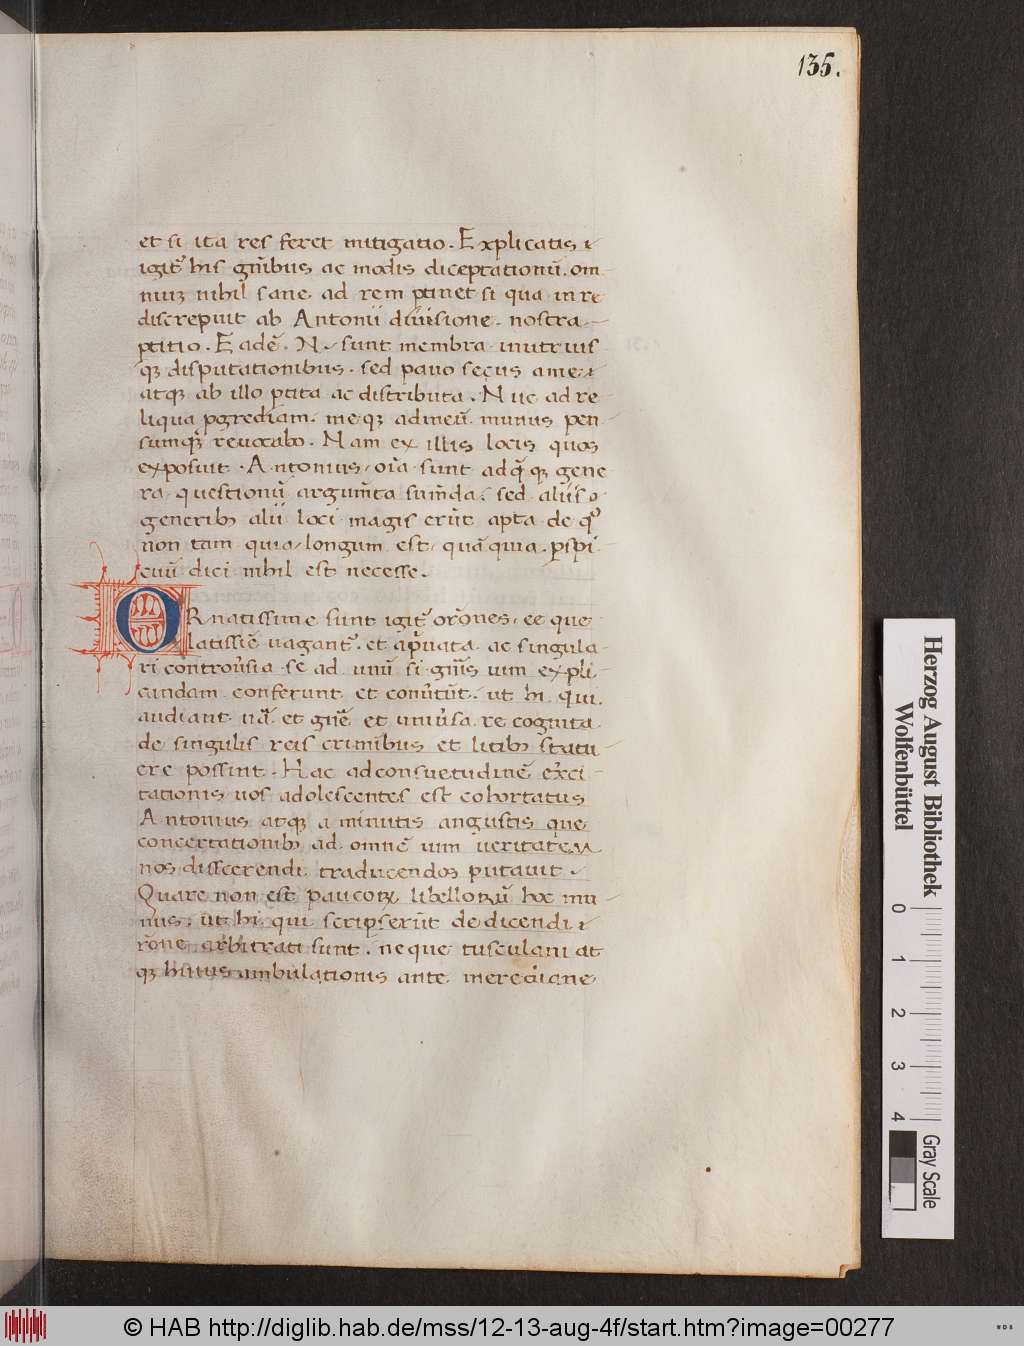 135.
et si ita res feret mitigatio. Explicatis
igit̃ his gñibus ac modis diceptationũ. om
niuꝫ nihil sane ad rem ꝑtinet si qua in re
discrepuit ab Antonii diuisione nostra
ꝑtitio. Eadẽ. N. sunt membra in utriis
qꝫ disputationibus. sed pauo secus a me
atqꝫ ab illo ꝑtita ac distributa. Nũc ad re
liqua ꝓgrediam. meqꝫ ad meũ munus pen
sumqꝫ reuocabo. Nam ex illis locis quos
exposuit Antonius oĩa sunt ad qꝫ gene
ra questionũ argumẽta sumẽda. sed aliis
generibꝫ alii loci magis erũt apta de qͦ
non tam quia longum est quã quia ꝑspi
cuũ dici nihil est necesse.
ORnatissime sunt igit̃ orõnes ee que
latissiẽ uagant̃. et a pͥuata ac singula
ri controũsia se ad uniũ si gñis uim expli
candam conferunt et conũtũt ut hi qui
audiant nã et gñe et uniũsa re cognita
de singulis reis criminibus et litibꝫ statu
ere possint. Hac ad consuetudinẽ exci
tationis uos adolescentes est cohortatus
Antonius atqꝫ a minutis angustis que
concertationibꝫ ad omnẽ uim ueritatem
nos disserendi traducendos putauit.
Quare non est paucoꝝ libelloruꝫ hoc mu
nus, ut hi qui scripserũt de dicendi
rõne arbitrati sunt. neque tusculani at
qꝫ huius ambulationis ante meredidiane
Herzog August Bibliothek
Wolfenbüttel
0 1 2 3 4
Gray Scale
© HAB http://diglib.hab.de/mss/12-13-aug-4f/start.htm?image=00277